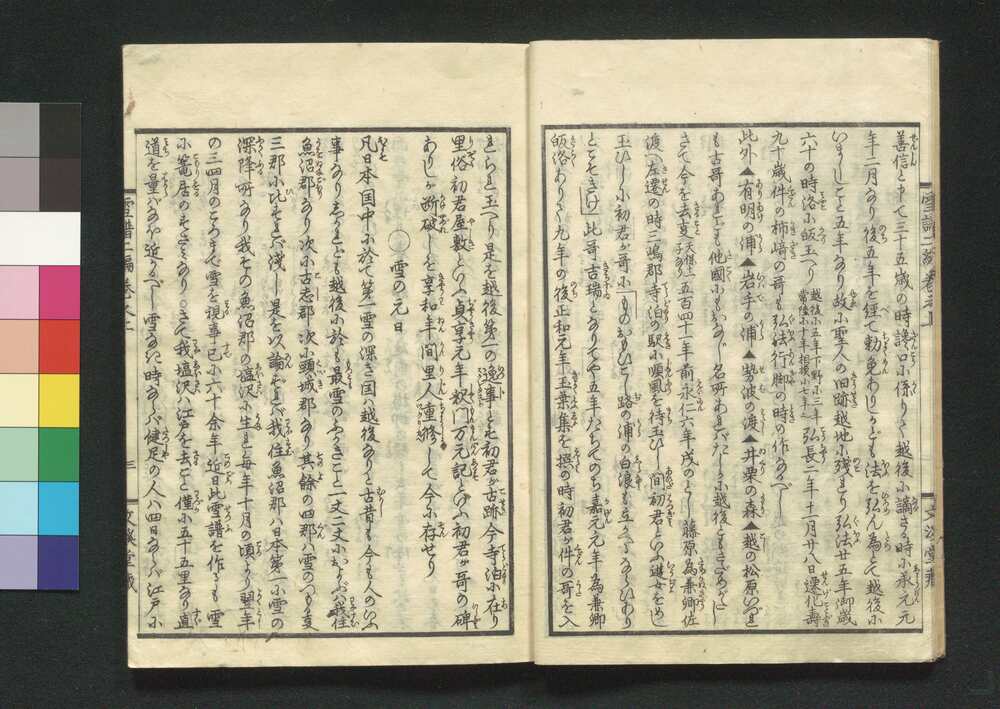 善信と申て三十五歳の時讒口に係りて越後に謫さる時に承元元
年二月なり後五年を経て勅免ありしかども法を弘ん為にとて越後に
いまししこと五年なり故に聖人の旧跡越地に残れり弘法廿五年御歳
六十の時洛に皈玉へり
越後に五年下野に三年
常陸に十年相摸に七年
弘長二年十一月廿八日遷化寿
九十歳件の柿崎の哥も弘法行脚の時の作なるべし
此外▲有明の浦▲岩手の浦▲勢波の渡▲井栗の森▲越の松原いづれ
も古哥あれども他国にもおなじ名所あればたしかに越後ともさだめがたし
さて今を去事
天保十一子なり
五百四十一年前永仁六年戌のとし藤原為兼卿佐
渡へ左遷の時三嶋郡寺泊の駅に順風を待玉ひし間初君といふ遊女をめし
玉ひしに初君が哥に「ものおもひこし路の浦の白浪も立かへるならひあり
とこそきけ」此哥吉瑞となりてや五年たちてのち嘉元元年為兼卿
皈洛ありて九年の後正和元年玉葉集を撰の時初君が件の哥を入
れられ玉へり是を越後第一の逸事とす初君が古跡今寺泊に在り
里俗初君屋敷といふ貞享元年 万元記しるすに初君が哥の碑
ありしが断破しを享和年間里人重修して今に存せり
○雪の元日
凡日本国中に於て第一雪の深き国は越後なりと古昔も今も人のいふ
事なりしかれども越後に於も最雪のふかきこと一丈二丈におよぶは我住
魚沼郡なり次に古志郡次に頸城郡なり其余の四郡は雪のつもる事
三郡に比すれば浅し是を以論ずれば我住魚沼郡は日本第一に雪の
深降所なり我その魚沼郡の塩沢に生れ毎年十月の頃より翌年
の三四月のころまで雪を視事已に六十余年近日此雪譜を作るも雪
に篭居のすさみなり○さて我塩沢は江戸を去こと僅に五十五里なり直
道を量ばなほ近かるべし雪なき時ならば健足の人は四日ならば江戸に
雪譜二編巻之上
文溪堂蔵
雪譜二編巻之上
三
文溪堂蔵